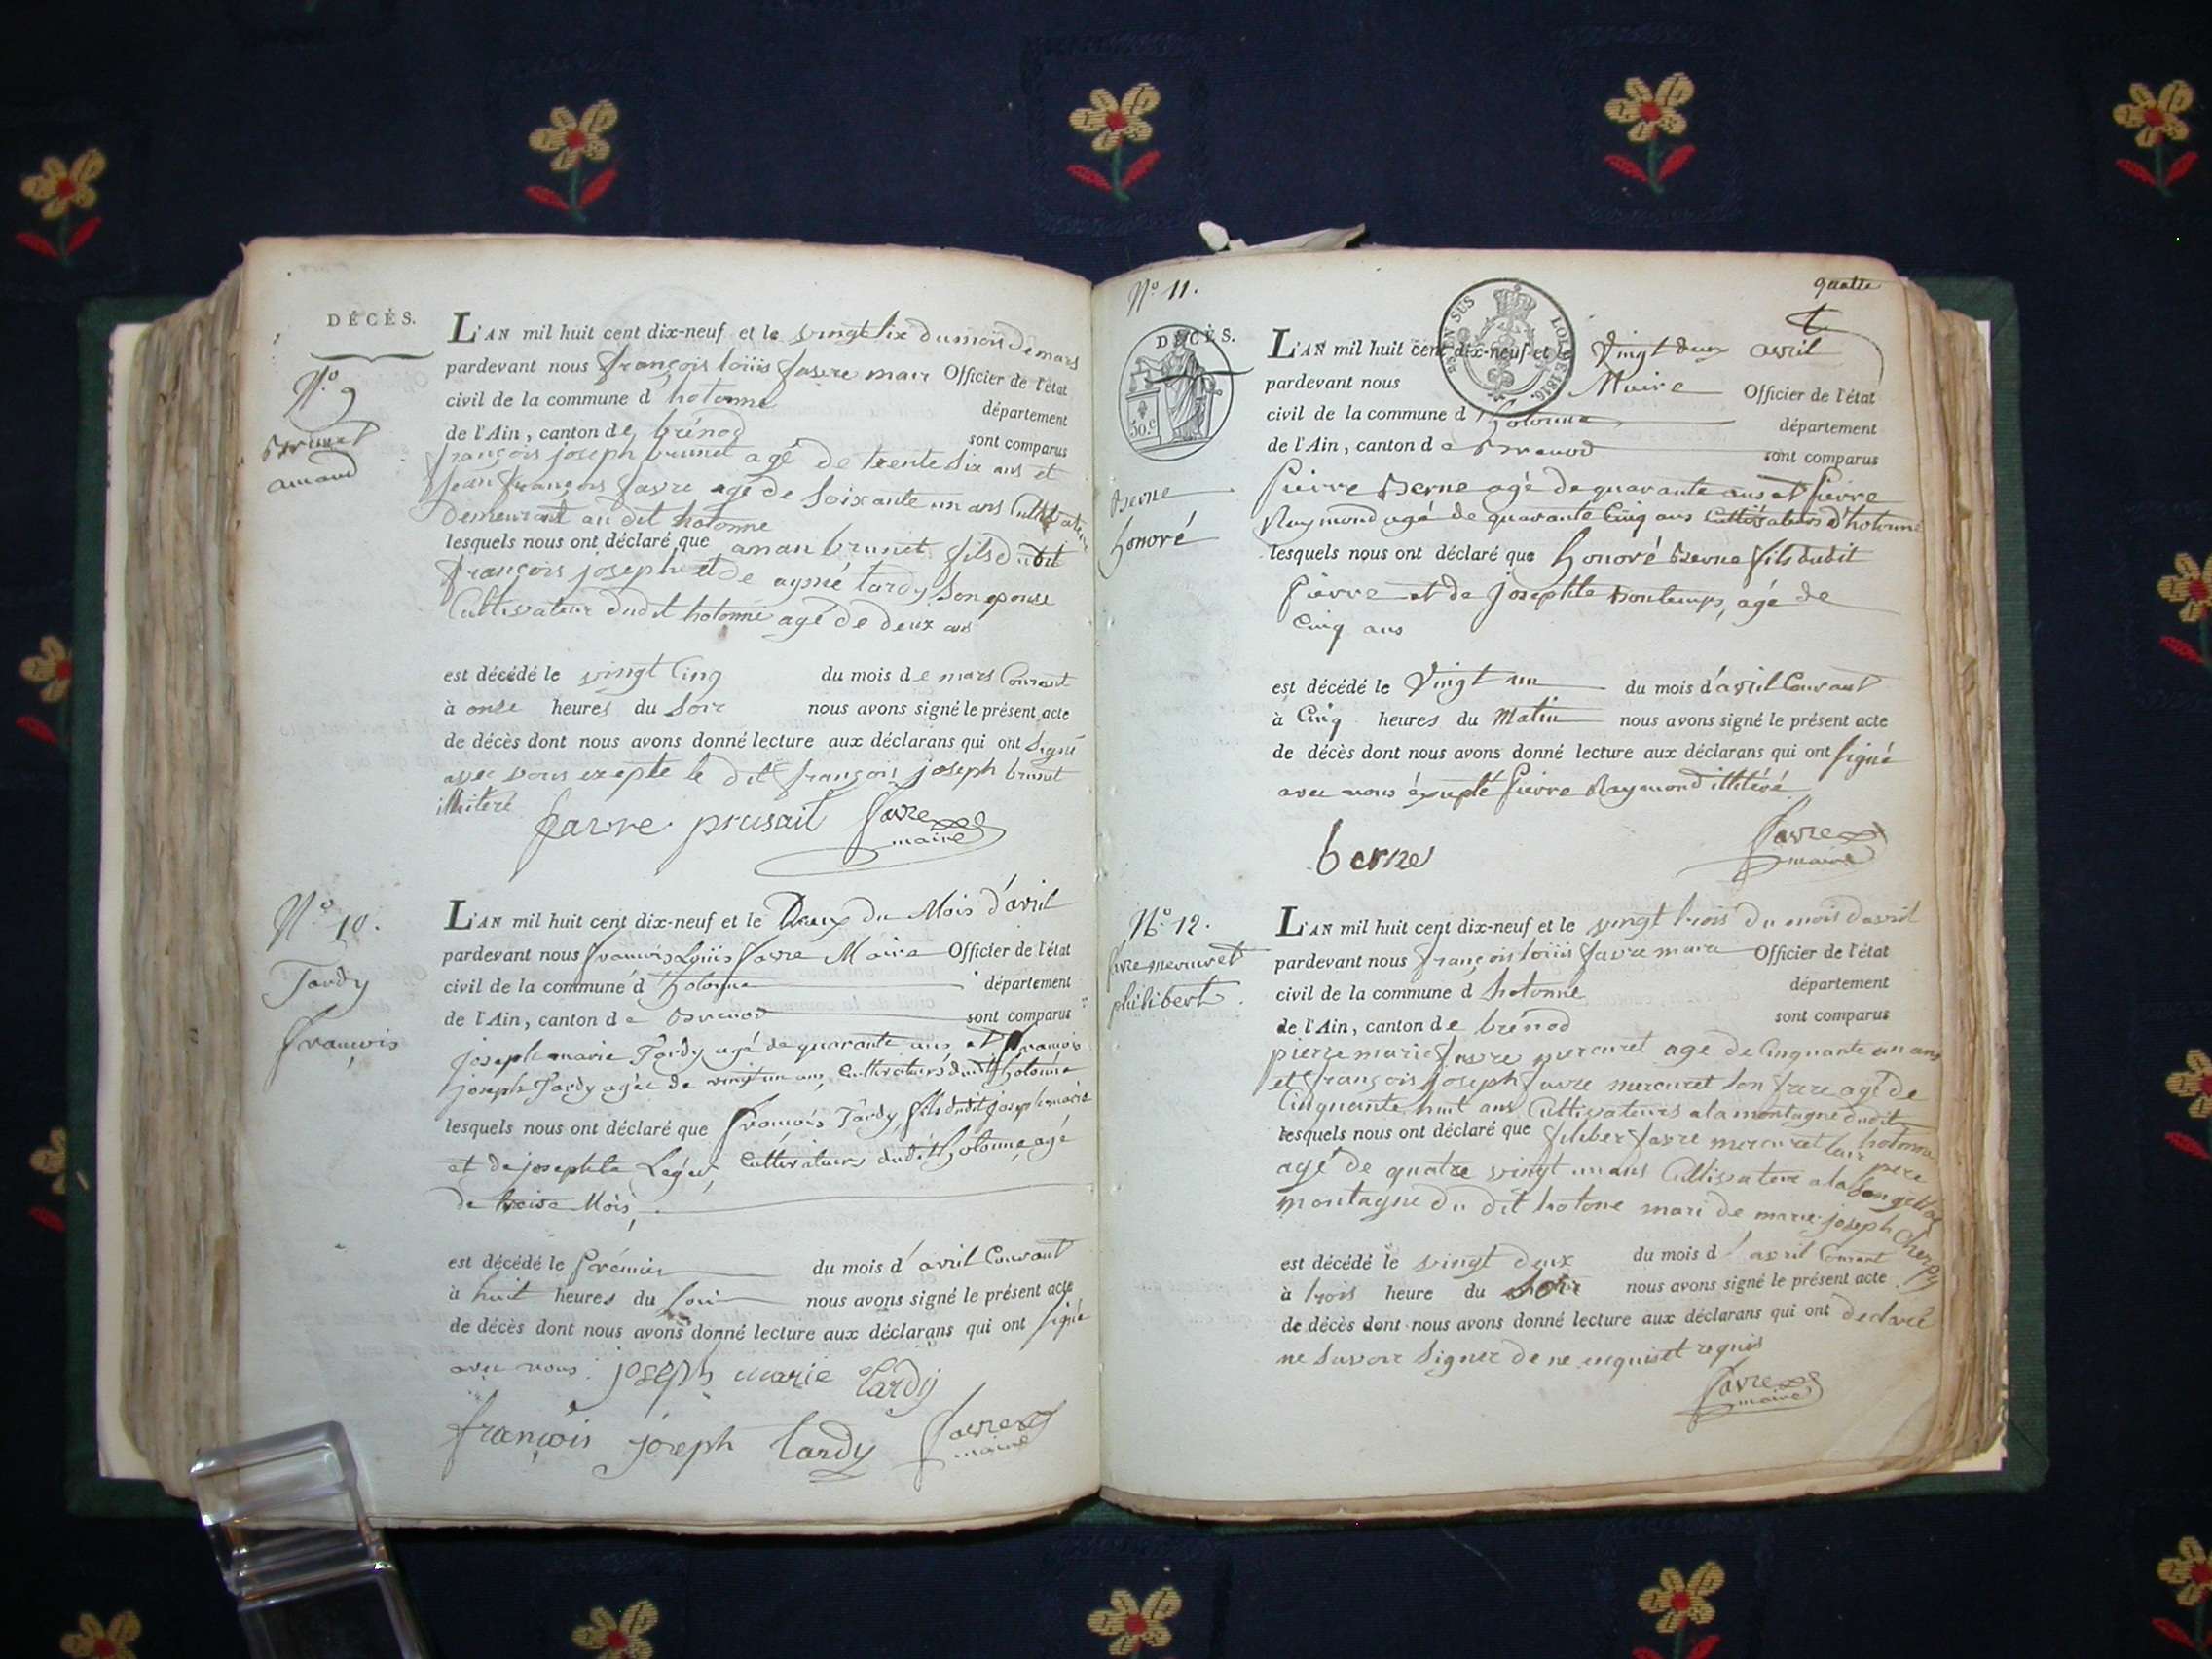 DÉCÈS.
N.º 9
Brunet
amand
L'AN mil huit cent dix-neuf et le vingt six du mois de mars
pardevant nous françois loüis favre mair Officier de l'état
civil de la commune d'hotonne département
de l'Ain, canton de brénod sont comparus
françois joseph brunet agé de trente six ans et
jean françois favre agé de soixante un ans Cultivateur
demeurant au dit hotonne
lesquels nous ont déclaré que aman brunet fils dudit
françois joseph et de aymé tardy son epouse
Cultivateur dudit hotonne agé de deux ans
est décédé le vingt cinq du mois de mars Courant
à onse heures du soir nous avons signé le présent acte
de décès dont nous avons donné lecture aux déclarans qui ont signé
avec nous exepte le dit françois joseph brunet
illiteré
favre favre
maire
N.º 10.
Tardy
françois
L'AN mil huit cent dix-neuf et le Deux du Mois d'avril
pardevant nous françois Loüis favre Maire Officier de l'état
civil de la commune d'hotonne département
de l'Ain, canton de Brenod sont comparus
joseph marie Tardy agé de quarante ans et françois
joseph Tardy agée de vingt un ans, Cultivateurs dudit hotonne
lesquels nous ont déclaré que françois Tardy, fils dudit joseph marie
et de josephte Leger, Cultivateurs dudit hotonne, agé
de treise Mois,
est décédé le prémier du mois d'avril Courant
à huit heures du soir nous avons signé le présent acte
de décès dont nous avons donné lecture aux déclarans qui ont signé
avec nous. joseph marie tardy
françois joseph tardy favre
maire
N.º 11.
quatre
DÉCÈS.
50.c
EN SUS
LOI DE 1816.
Berne
honoré
L'AN mil huit cent dix-neuf et le Vingt deux avril
pardevant nous Maire Officier de l'état
civil de la commune d'hotonne département
de l'Ain, canton de Brenod sont comparus
Pierre Berne agé de quarante ans et Pierre
Raymond agé de quarante Cinq ans Cultivateurs d'hotonne
lesquels nous ont déclaré que honoré Berne fils dudit
Pierre et de josephte Bontemps, agé de
Cinq ans
est décédé le Vingt un du mois d'avril Courant
à Cinq heures du Matin nous avons signé le présent acte
de décès dont nous avons donné lecture aux déclarans qui ont signé
avec nous Pierre Raymond illitéré
berne favre
maire
N.º 12.
favre mercuret
philibert.
L'AN mil huit cent dix-neuf et le vingt trois du mois d'avril
pardevant nous françois loüis favre maire Officier de l'état
civil de la commune d'hotonne département
de l'Ain, canton de brénod sont comparus
pierre marie favre mercuret age de Cinquante un ans
et françois joseph favre mercuret son frere agé de
Cinquante huit ans Cultivateurs a la montagne dudit
hotonne
lesquels nous ont déclaré que filiber favre mercuret leur pere
agé de quatre vingt un ans Cultivateur a la
montagne du dit hotone mari de marie joseph
est décédé le vingt deux du mois d'avril Courant
à trois heure du soir nous avons signé le présent acte
de décès dont nous avons donné lecture aux déclarans qui ont declaré
ne savoir signer de ce enquis et requis
favre
maire